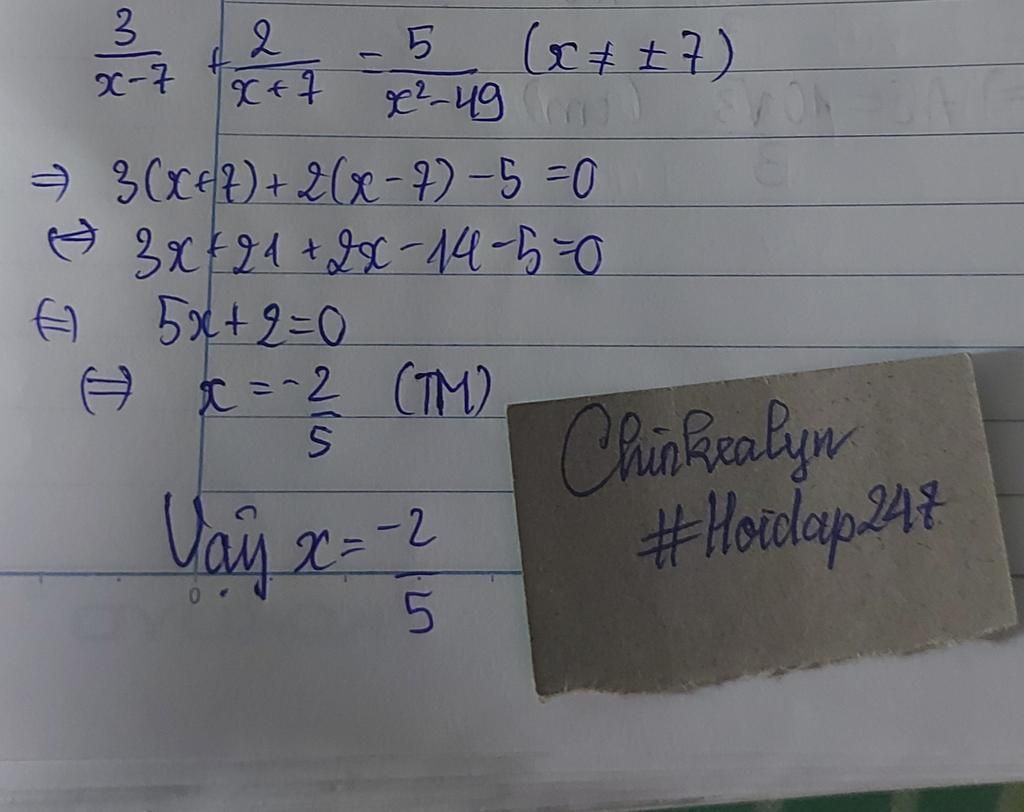 3/(x-7) + 2/(x+7) - 5/(x²-49) (x ≠ ±7)
⇒ 3(x+7)+2(x-7)-5=0
⇔ 3x+21+2x-14-5=0
⇔ 5x+2=0
⇔ x=-2/5 (TM)
Vậy x=-2/5
Chinkealyn
#Hoidap247
0